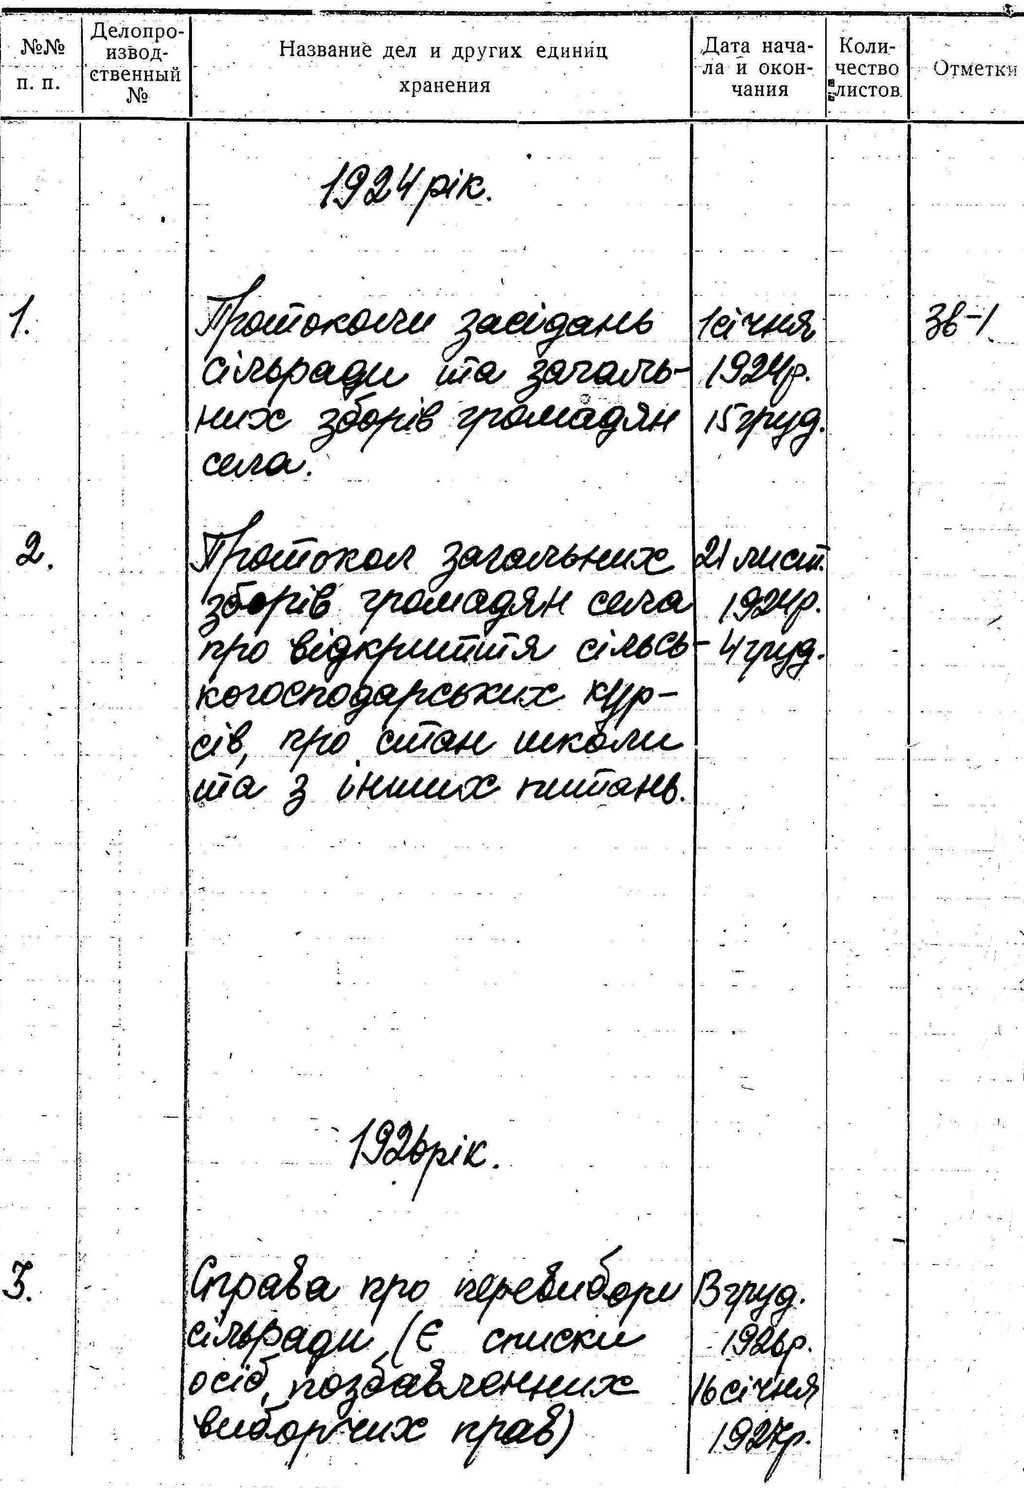 №№ п. п.
Делопро-
извод-
ственный
№
Название дел и других единиц
хранения
Дата нача-
ла и окон-
чания
Коли-
чество
листов
Отметки
1924 рік.
1.
Протоколи засідань
сільради та загаль-
них зборів громадян
села.
1 січня
1924р.
15 груд.
Зв-1
2.
Протокол загальних
зборів громадян села
про відкриття сільсь-
когосподарських кур-
сів, про стан школи
та з інших питань.
21 лист.
1924р.
4 груд.
1926 рік.
3.
Справа про перевибори
сільради (є списки
осіб, позбавленних
виборчих прав)
13 груд.
1926р.
16 січня
1927р.